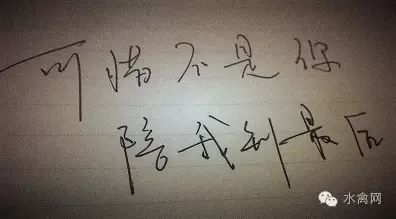 可惜不是你
陪我到最后
水禽网